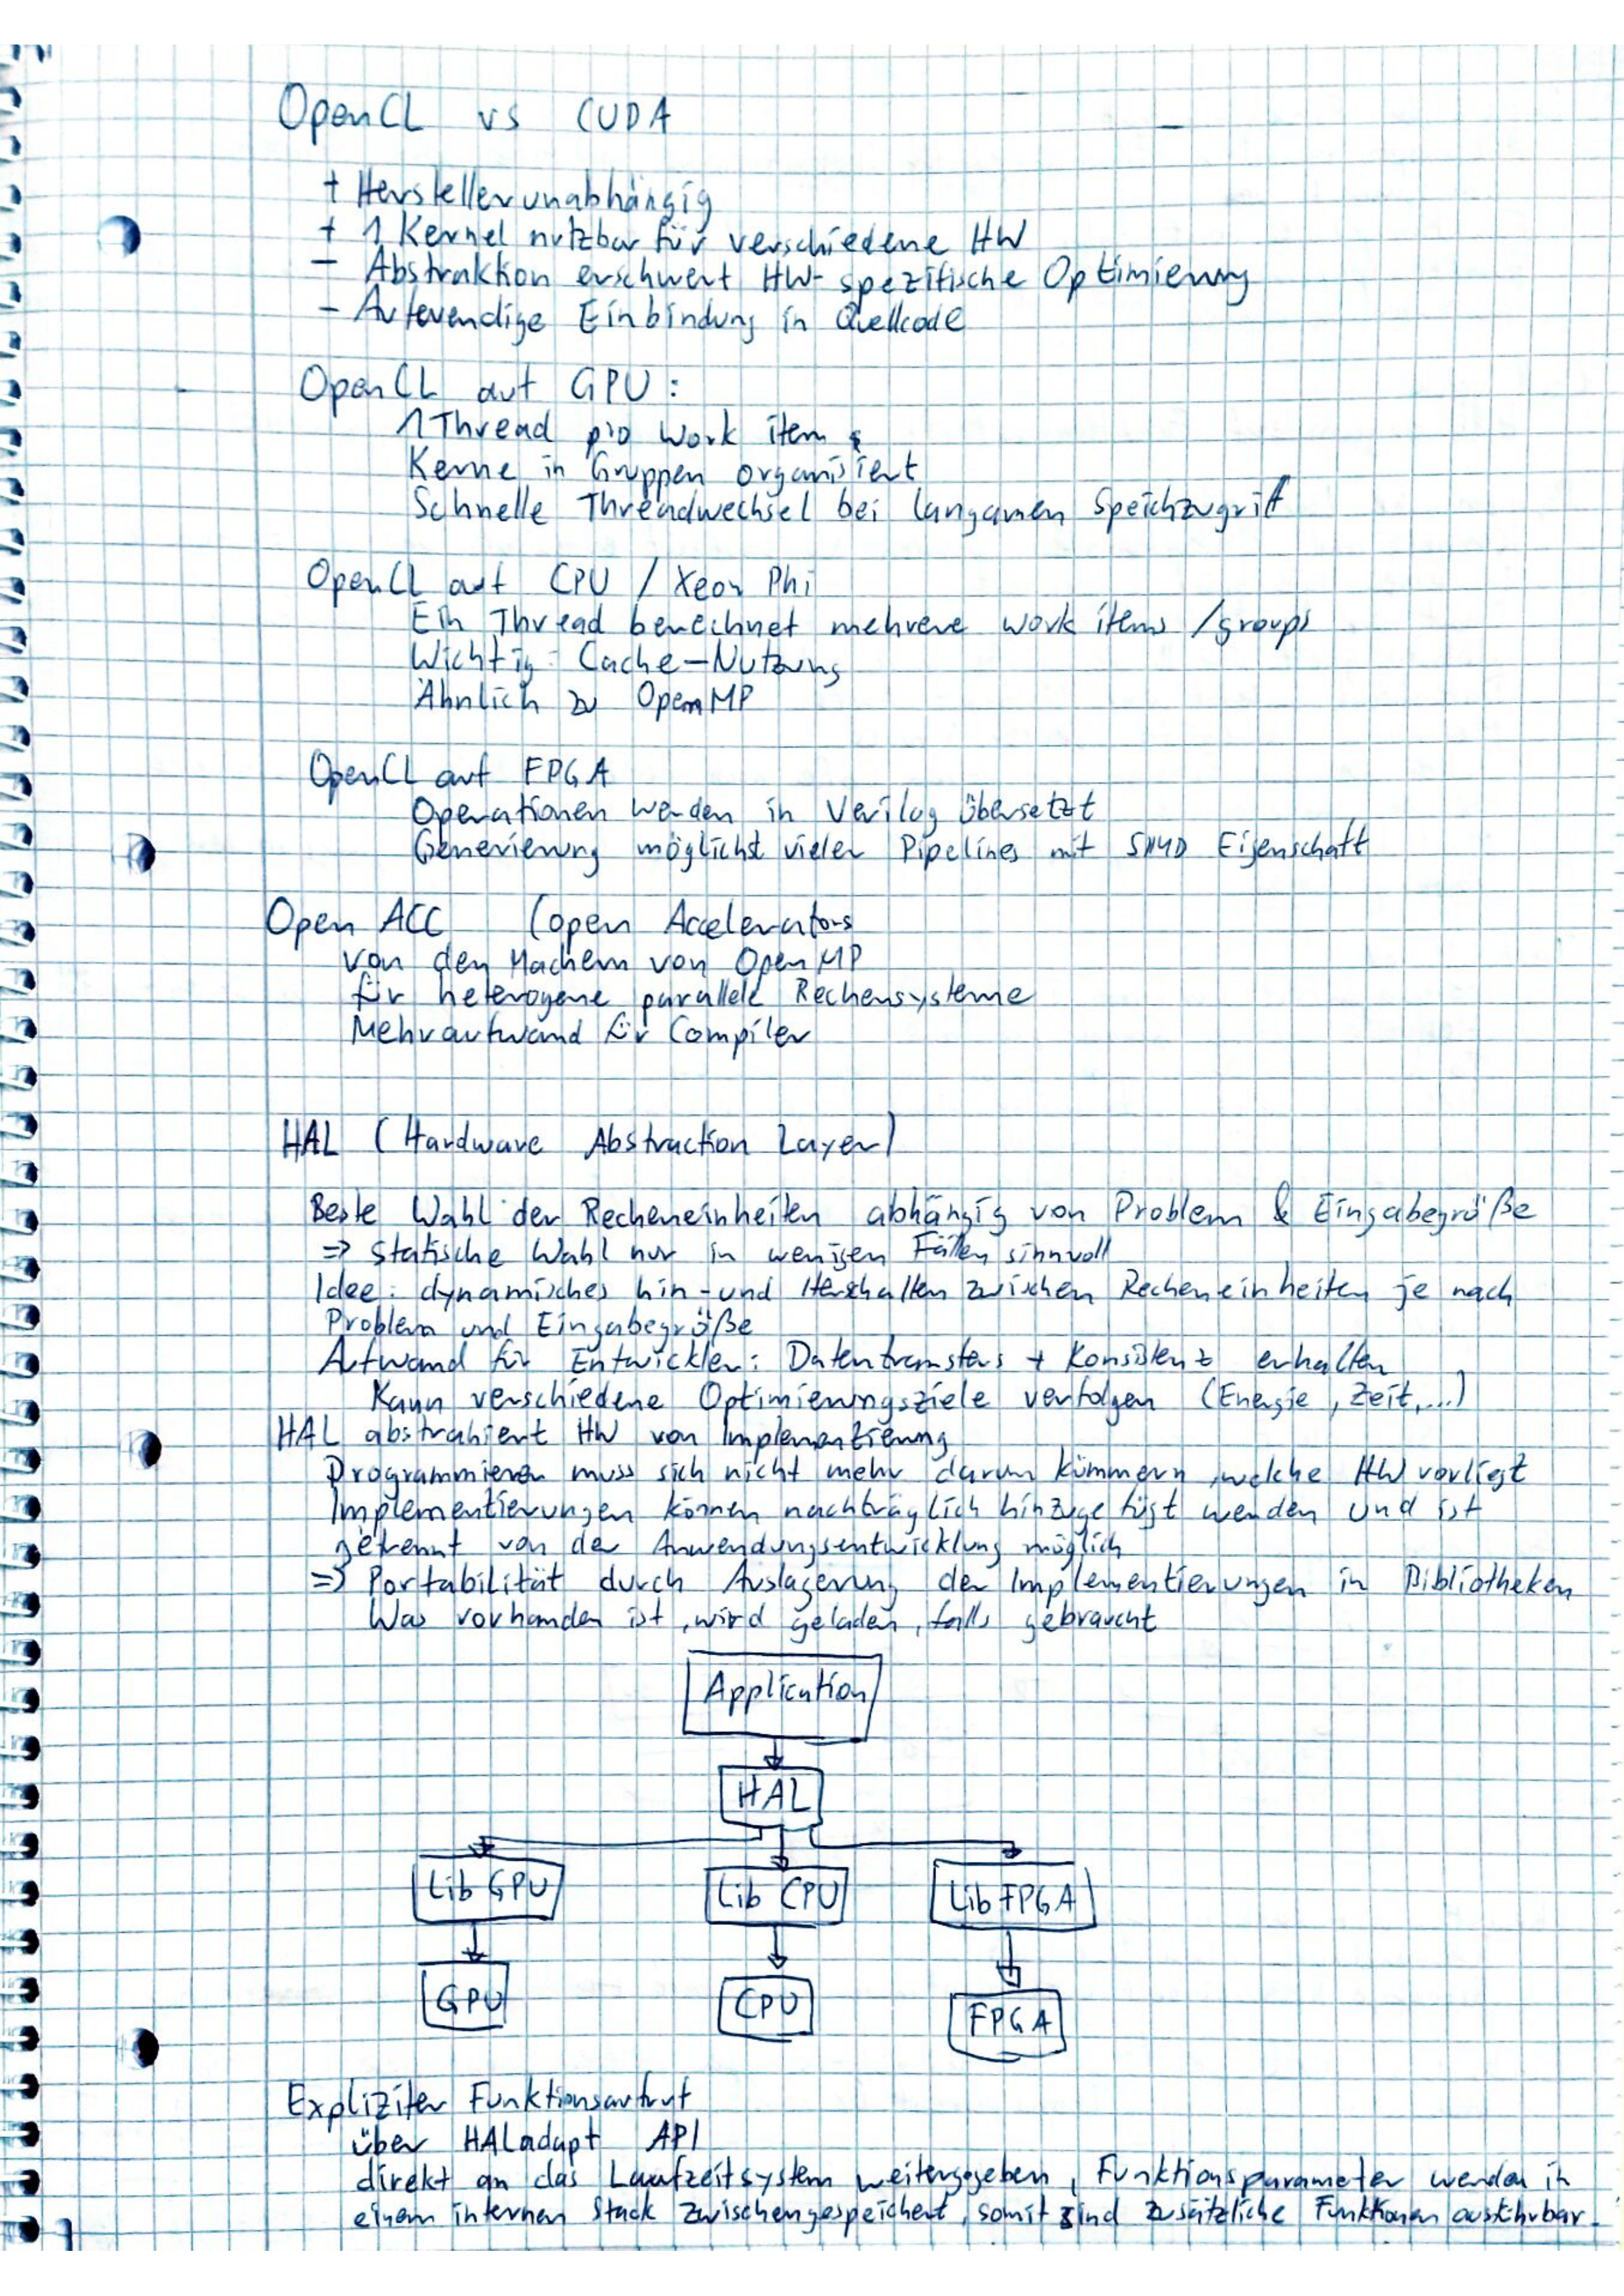 OpenCL vs CUDA
+ Herstellerunabhängig
+ 1 Kernel nutzbar für verschiedene HW
- Abstraktion erschwert HW-spezifische Optimierung
- Aufwendige Einbindung in Quellcode
OpenCL auf GPU:
1 Thread pro Work item
Kerne in Gruppen organisiert
Schnelle Threadwechsel bei langamen Speichzugriff
OpenCL auf CPU / Xeon Phi
Ein Thread berechnet mehrere work items /groups
Wichtig: Cache-Nutzung
Ähnlich zu OpenMP
OpenCL auf FPGA
Operationen werden in Verilog übersetzt
Generierung möglichst vieler Pipelines mit SIMD Eigenschaft
Open ACC (open Accelerators
von den Machern von OpenMP
für heterogene parallele Rechensysteme
Mehraufwand für Compiler
HAL (Hardware Abstraction Layer)
Beste Wahl der Recheneinheiten abhängig von Problem & Eingabegröße
=> statische Wahl nur in wenigen Fällen sinnvoll
Idee: dynamisches hin- und Herschalten zwischen Recheneinheiten je nach
Problem und Eingabegröße
Aufwand für Entwickler: Datentransfers + Konsistenz erhalten
Kann verschiedene Optimierungsziele verfolgen (Energie, Zeit,...)
HAL abstrahiert HW von Implementierung
Programmierer muss sich nicht mehr darum kümmern, welche HW vorliegt
Implementierungen können nachträglich hinzugefügt werden und ist
getrennt von der Anwendungsentwicklung möglich
=> Portabilität durch Auslagerung der Implementierungen in Bibliotheken
Was vorhanden ist, wird geladen, falls gebraucht
Application
HAL
Lib GPU Lib CPU Lib FPGA
GPU CPU FPGA
Expliziter Funktionsaufruf
über HALadapt API
direkt an das Laufzeitsystem weitergegeben, Funktionsparameter werden in
einem internen Stack zwischengespeichert, somit sind zusätzliche Funktionen ausführbar.